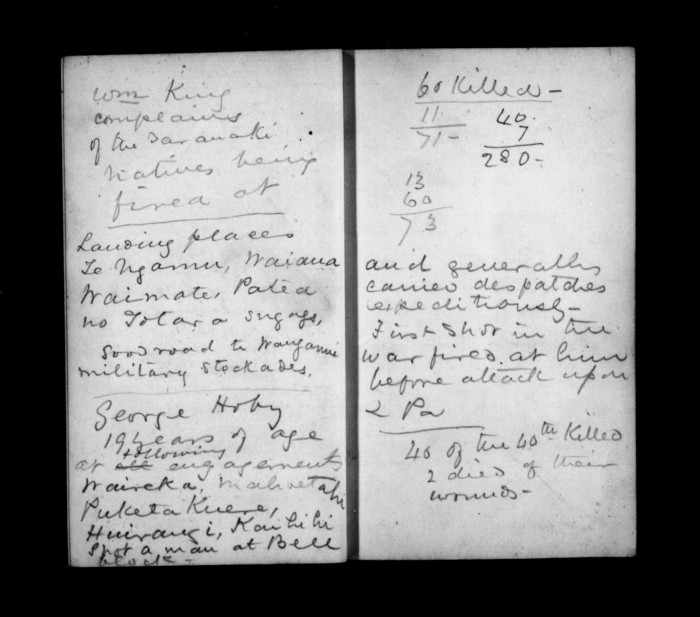 Wm King
complains
of the Taranaki
Natives being
fired at
Landing places
Te Ngamu, Waiana
Waimate, Patea
no Totara
Good road to Wanganui
military stockades.
George Hoby
19 years of age
following
at all engagements
Waireka, Mahoetahi
Puketa Kuere,
Huirangi, Kaihihi
Shot a man at Bell
block -
60 Killed -
11 40
71 - 7
280 -
13
60
73
and generally
carried despatches
expeditiously -
First shot in the
War fired at him
before attack upon
L Pa
40 of the 40th Killed
2 died of their
wounds -